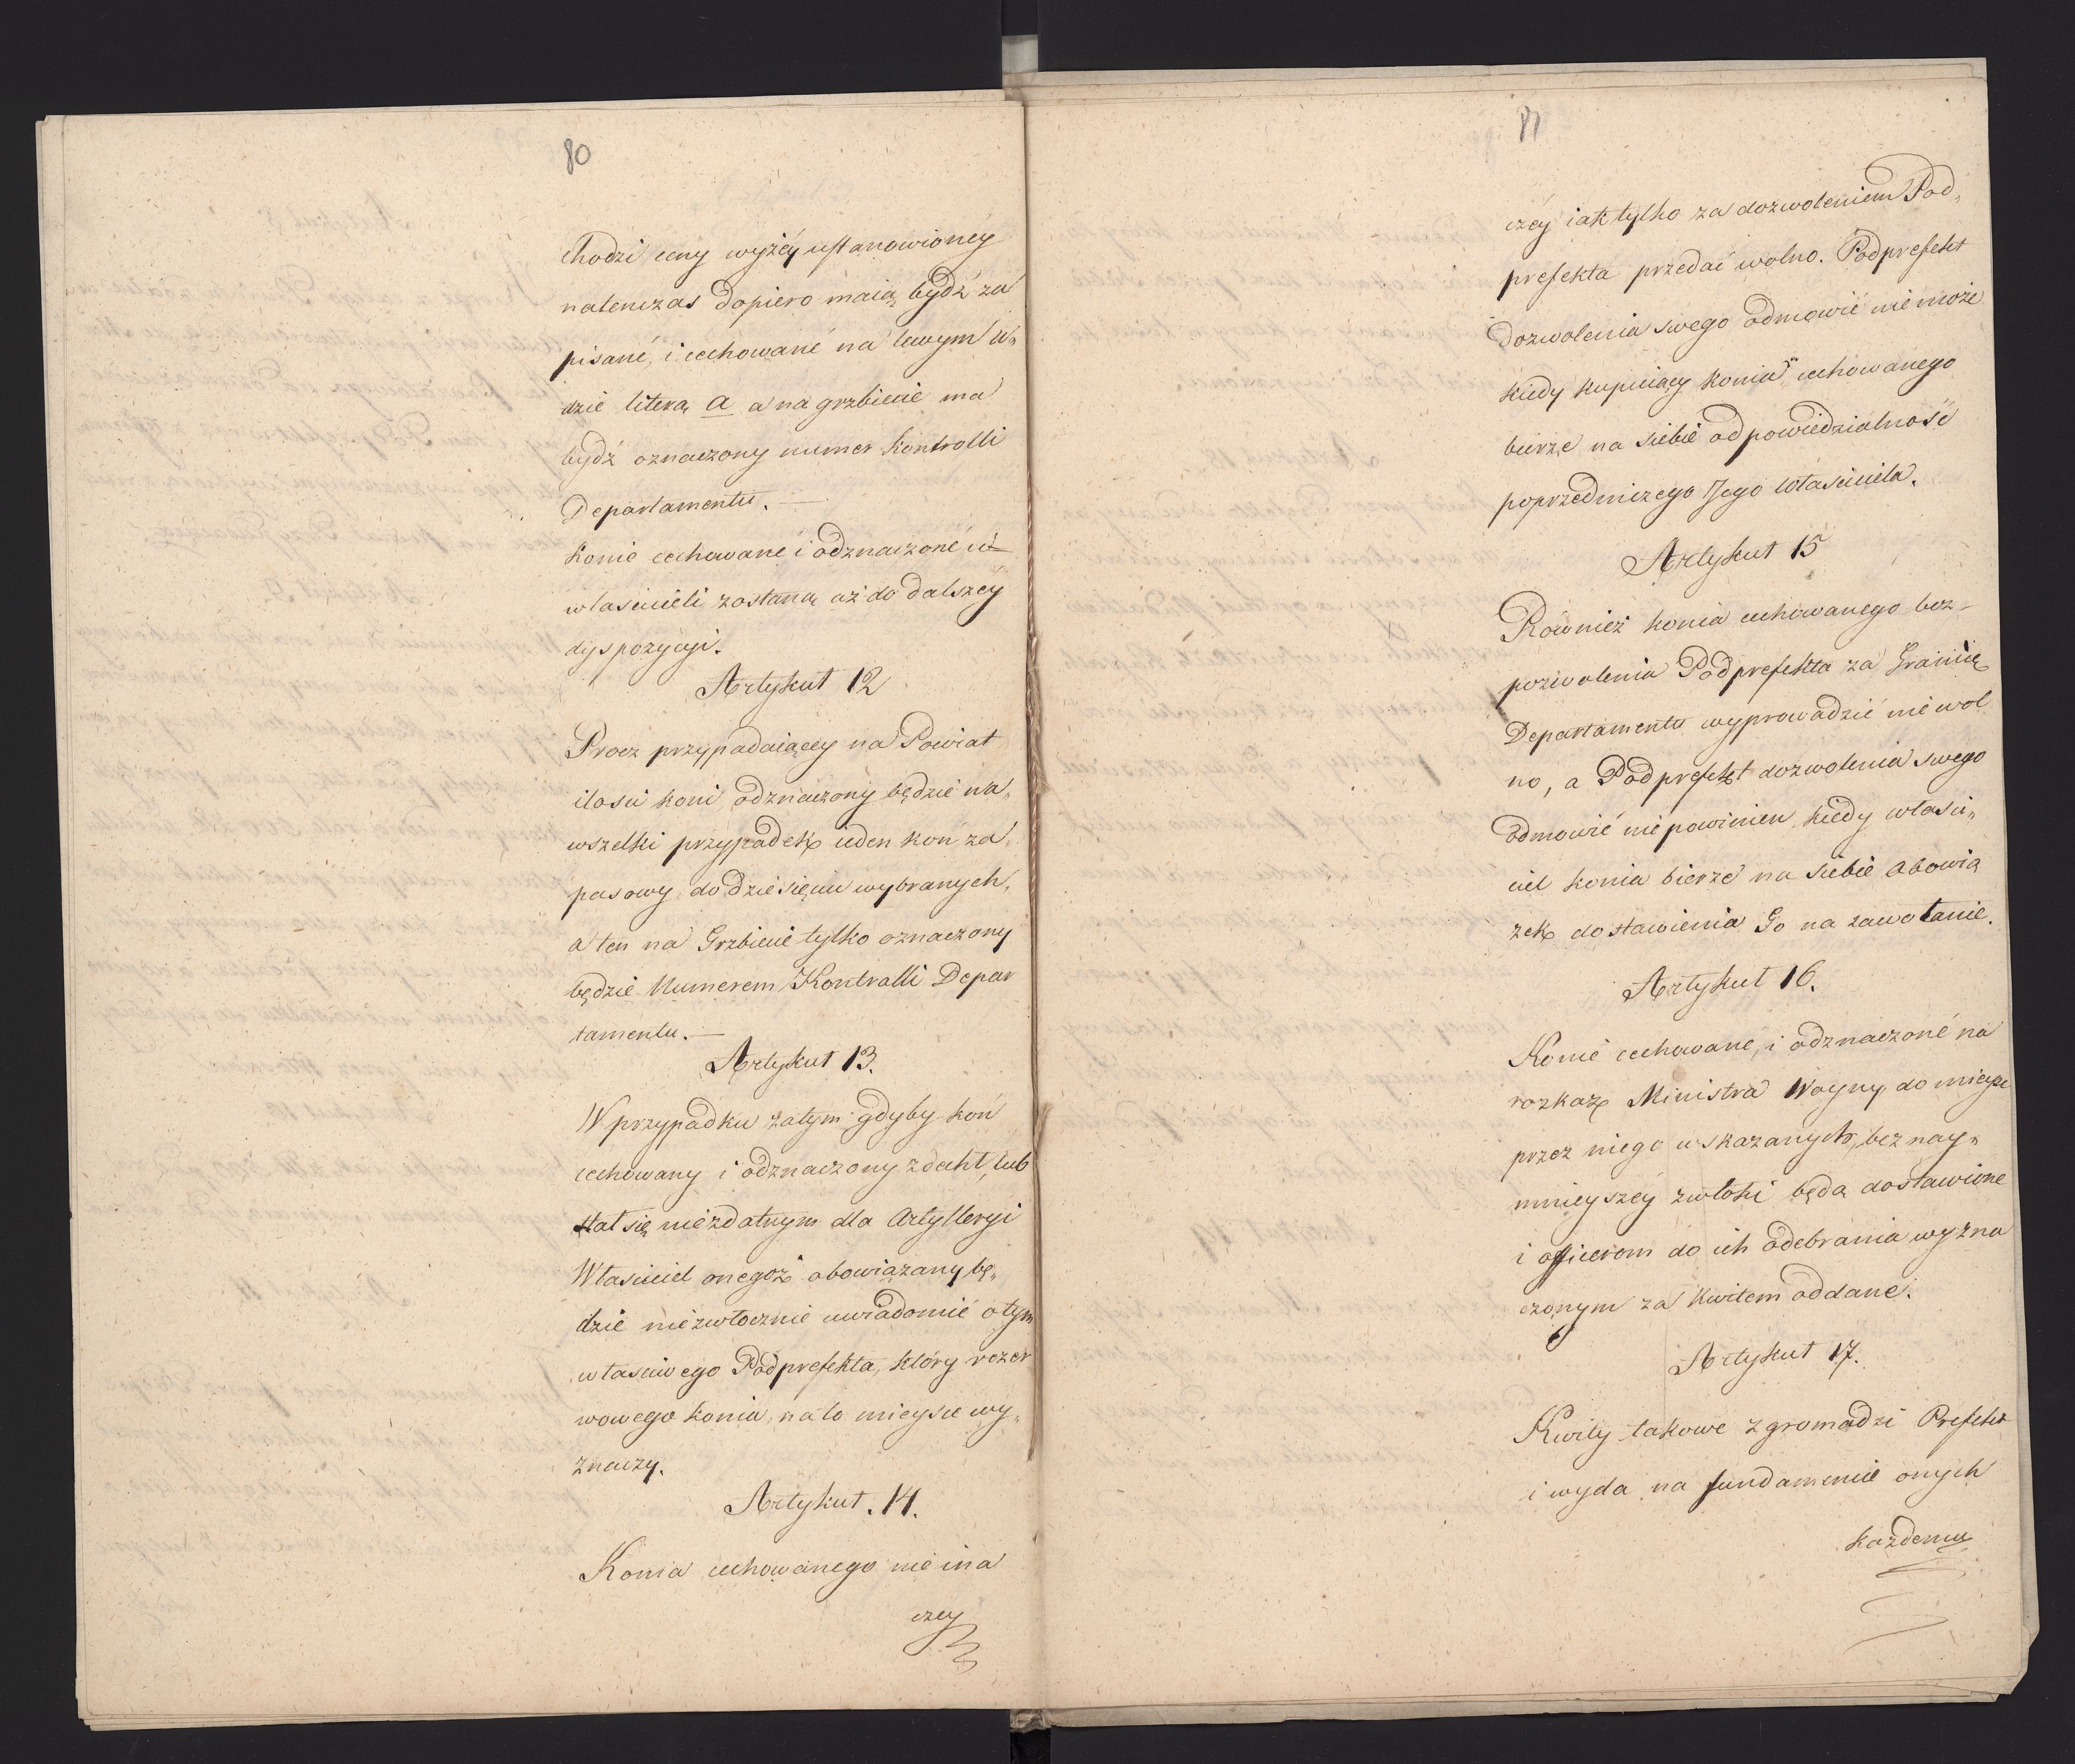 80
chodzi ceny wyżéy ustanowionéy
natenczas dopiero maią bydź za
pisané, i cechowané na lewym u„
dzie literą a a na grzbiecie ma
bydź oznaczony numer kontrolli
Departamentu. —
Konie cechowane i odznaczoné u
właścicieli zostaną aż do dalszéy
dyspozycyi.
Artykuł 12
Procz przypadaiącey na Powiat
ilosci koni odznaczony będzie na„
wszelki przypadek ieden kon za„
pasowy do dziesięciu wybranych,
a ten na Grzbiecie tylko oznaczony
będzie Numerem Kontrolli Depar
tamentu. —
Artykuł 13.
W przypadku zatym gdyby koń
cechowany i odznaczony zdechł, lub
stał się niezdatnym dla Artylleryi
Właściciel onegoż obowiązany bę„
dzie niezwłocznie uwiadomić o tym
własciwego Podprefekta, który rezer
wowego konia, na to mieysce wy„
znaczy.
Artykuł. 14.
Konia cechowanego nie ina
czey
81
czéy iak tylko za dozwoleniem Pod„
prefekta przedać wolno. Podprefekt
dozwolenia swego odmowić nie może
kiedy kupuiący konia cechowanego
bierze na siebie odpowiedzialność
poprzedniczego Jego Właściciela.
Artykuł 15
Rownież konia cechowanego bez„
pozwolenia Podprefekta za Granicę
Departamentu wyprowadzić nie wol
no, a Podprefekt dozwolenia swego
odmowić nie powinien, kiedy własci„
ciel konia bierze na siebie obowią
zek dostawienia Go na zawołanie.
Artykuł 16.
Konie cechowane, i odznaczoné na
rozkaz Ministra Woyny, do mieysc
przez niego wskazanych, bez nay„
mnieyszéy zwłoki będą dostawione
i officerom do ich odebrania wyzna
czonym za kwitem oddane.
Artykuł 17.
Kwity takowe zgromadzi Prefekt
i wyda na fundamencie onych
każdemu